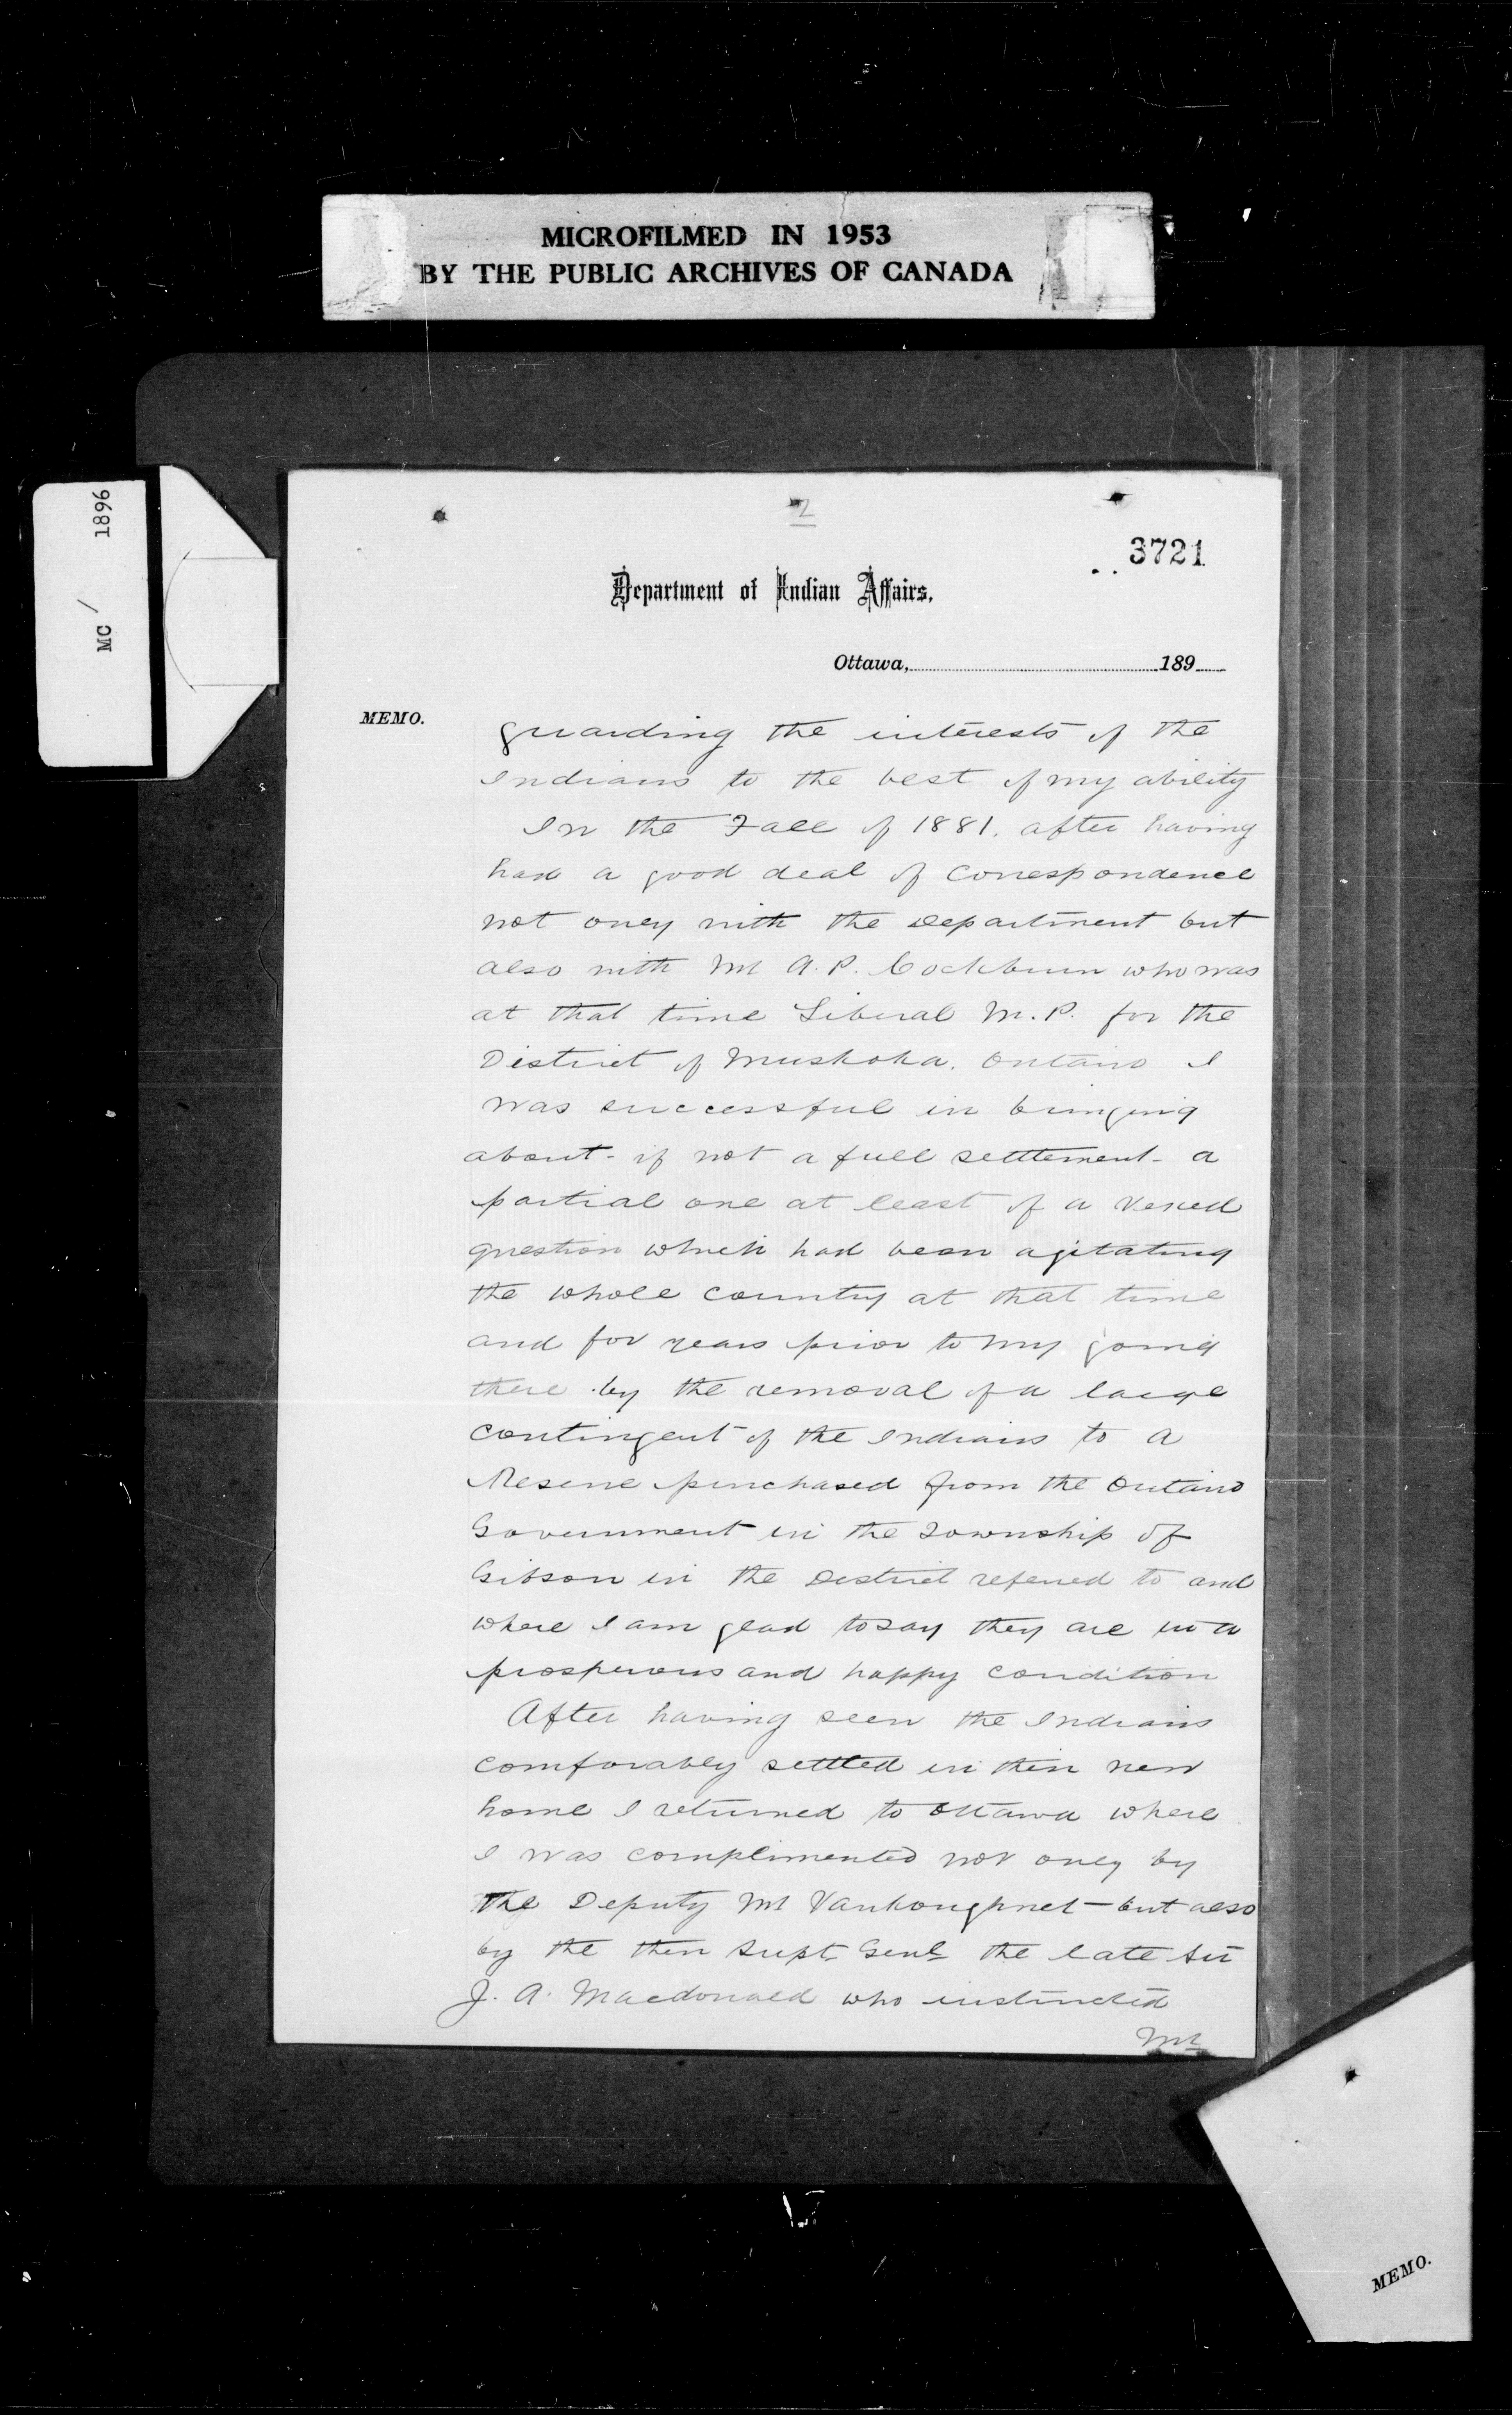 MICROFILMED IN 1953
BY THE PUBLIC ARCHIVES OF CANADA
MC / 1896
2
3721
Department of Indian Affairs.
Ottawa, 189
MEMO.
guarding the interests of the
Indians to the best of my ability
In the Fall of 1881. after having
had a good deal of correspondence
not only with the Department but
also with Mr A. P. Cockburn who was
at that time Liberal M. P. for the
District of Muskoka. Ontario I
was successful in bringing
about - if not a full settlement - a
partial one at least of a vexed
question which had been agitating
the whole country at that time
and for years prior to my going
there by the removal of a large
contingent of the Indians to a
Reserve purchased from the Ontario
Government in the Township of
Gibson in the District referred to and
where I am glad to say they are in a
prosperous and happy condition
After having seen the Indians
comforably settled in their new
home I returned to Ottawa where
I was complimented not only by
the Deputy Mr Vankoughnet - but also
by the then Supt. Genl. the late Sir
J. A. Macdonald who instructed
Mr
MEMO.